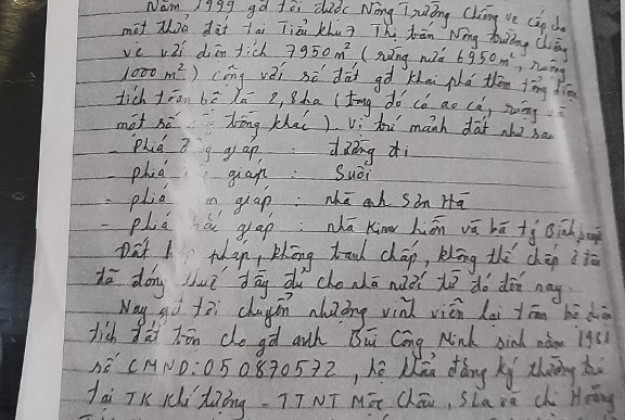 Năm 1999 gđ tôi được Nông Trường Chiềng ve cấp cho
một thửa đất tại Tiểu khu 7 Thị trấn Nông trường Chiềng
ve với diện tích 7950 m² (rừng núi 6950 m², ruộng
1000 m²) cộng với số đất gđ khai phá thêm tổng diện
tích toàn bộ là 2,8 ha (trong đó có ao cá, ruộng và
một số trồng khác). Vị trí mảnh đất như sau
- Phía giáp : đường đi
- phía giáp : Suối
- phía giáp : nhà anh Sơn Hà
- phía bắc giáp : nhà Kim hiền và bà tý Bình
Đất hợp pháp, không tranh chấp, không thế chấp
đã đóng thuế đầy đủ cho nhà nước từ đó đến nay.
Nay gđ tôi chuyển nhượng vĩnh viễn lại toàn bộ diện
tích đất trên cho gđ anh Bùi Công Minh sinh năm 1981
số CMND: 050870572, hộ khẩu đăng ký thường trú
tại TK Khí tượng - TTNT Mộc Châu, SLa và chị Hoàng